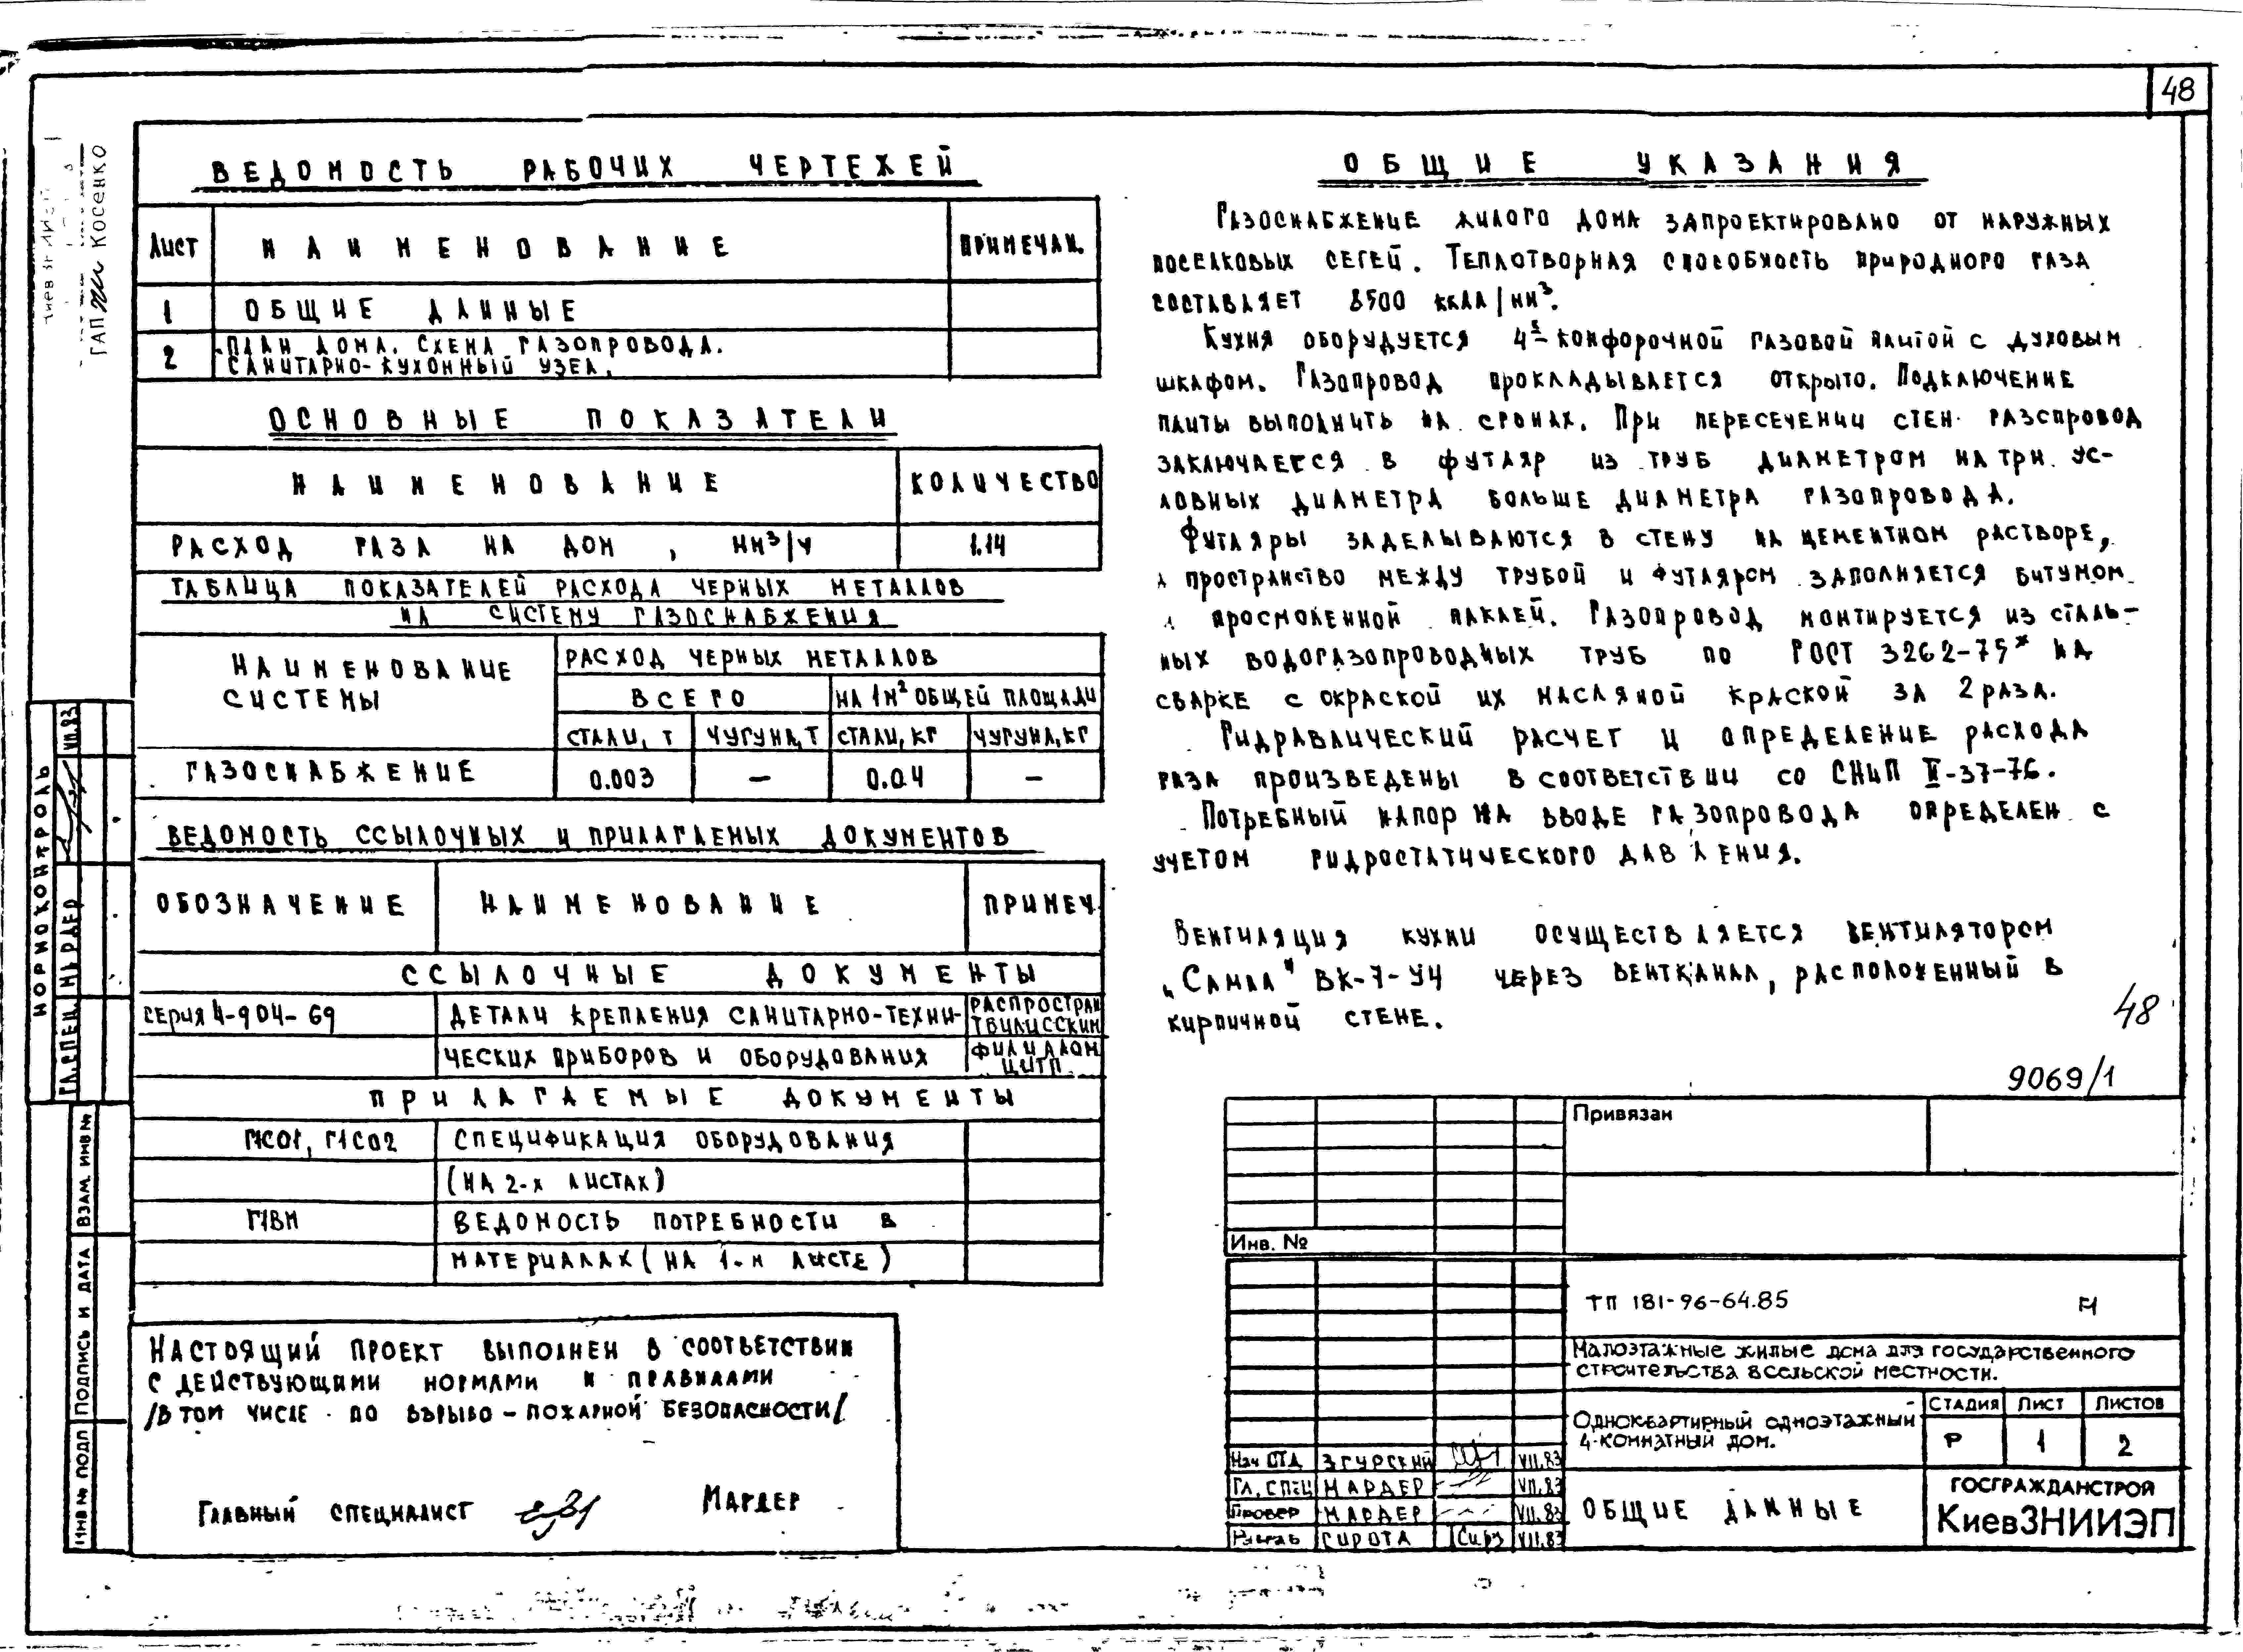 48
ВЕДОМОСТЬ РАБОЧИХ ЧЕРТЕЖЕЙ
Лист НАИМЕНОВАНИЕ ПРИМЕЧАН.
1 ОБЩИЕ ДАННЫЕ
2 ПЛАН ДОМА. СХЕМА ГАЗОПРОВОДА.
САНИТАРНО-КУХОННЫЙ УЗЕЛ.
ОСНОВНЫЕ ПОКАЗАТЕЛИ
НАИМЕНОВАНИЕ КОЛИЧЕСТВО
РАСХОД ГАЗА НА ДОМ, НМ³/Ч 1.14
ТАБЛИЦА ПОКАЗАТЕЛЕЙ РАСХОДА ЧЕРНЫХ МЕТАЛЛОВ
НА СИСТЕМУ ГАЗОСНАБЖЕНИЯ
НАИМЕНОВАНИЕ СИСТЕМЫ
РАСХОД ЧЕРНЫХ МЕТАЛЛОВ
ВСЕГО НА 1М² ОБЩЕЙ ПЛОЩАДИ
СТАЛИ, Т ЧУГУНА, Т СТАЛИ, КГ ЧУГУНА, КГ
ГАЗОСНАБЖЕНИЕ 0.003 — 0.04 —
ВЕДОМОСТЬ ССЫЛОЧНЫХ И ПРИЛАГАЕМЫХ ДОКУМЕНТОВ
ОБОЗНАЧЕНИЕ НАИМЕНОВАНИЕ ПРИМЕЧ.
ССЫЛОЧНЫЕ ДОКУМЕНТЫ
СЕРИЯ 4-904-69 ДЕТАЛИ КРЕПЛЕНИЯ САНИТАРНО-ТЕХНИ- РАСПРОСТРАН ТБИЛИССКИМ
ЧЕСКИХ ПРИБОРОВ И ОБОРУДОВАНИЯ ФИЛИАЛОМ ЦИТП.
ПРИЛАГАЕМЫЕ ДОКУМЕНТЫ
Г1СО1, Г1СО2 СПЕЦИФИКАЦИЯ ОБОРУДОВАНИЯ
(НА 2-Х ЛИСТАХ)
Г1ВМ ВЕДОМОСТЬ ПОТРЕБНОСТИ В
МАТЕРИАЛАХ (НА 1-М ЛИСТЕ)
НАСТОЯЩИЙ ПРОЕКТ ВЫПОЛНЕН В СООТВЕТСТВИИ
С ДЕЙСТВУЮЩИМИ НОРМАМИ И ПРАВИЛАМИ
/В ТОМ ЧИСЛЕ ПО ВЗРЫВО-ПОЖАРНОЙ БЕЗОПАСНОСТИ/
ГЛАВНЫЙ СПЕЦИАЛИСТ МАРДЕР
ОБЩИЕ УКАЗАНИЯ
ГАЗОСНАБЖЕНИЕ ЖИЛОГО ДОМА ЗАПРОЕКТИРОВАНО ОТ НАРУЖНЫХ
ПОСЕЛКОВЫХ СЕТЕЙ. ТЕПЛОТВОРНАЯ СПОСОБНОСТЬ ПРИРОДНОГО ГАЗА
СОСТАВЛЯЕТ 8500 ККАЛ/НМ³.
КУХНЯ ОБОРУДУЕТСЯ 4х-КОНФОРОЧНОЙ ГАЗОВОЙ ПЛИТОЙ С ДУХОВЫМ
ШКАФОМ. ГАЗОПРОВОД ПРОКЛАДЫВАЕТСЯ ОТКРЫТО. ПОДКЛЮЧЕНИЕ
ПЛИТЫ ВЫПОЛНИТЬ НА СГОНАХ. ПРИ ПЕРЕСЕЧЕНИИ СТЕН ГАЗОПРОВОД
ЗАКЛЮЧАЕТСЯ В ФУТЛЯР ИЗ ТРУБ ДИАМЕТРОМ НА ТРИ УС-
ЛОВНЫХ ДИАМЕТРА БОЛЬШЕ ДИАМЕТРА ГАЗОПРОВОДА.
ФУТЛЯРЫ ЗАДЕЛЫВАЮТСЯ В СТЕНУ НА ЦЕМЕНТНОМ РАСТВОРЕ,
А ПРОСТРАНСТВО МЕЖДУ ТРУБОЙ И ФУТЛЯРОМ ЗАПОЛНЯЕТСЯ БИТУМОМ
И ПРОСМОЛЕННОЙ ПАКЛЕЙ. ГАЗОПРОВОД МОНТИРУЕТСЯ ИЗ СТАЛЬ-
НЫХ ВОДОГАЗОПРОВОДНЫХ ТРУБ ПО ГОСТ 3262-75* НА
СВАРКЕ С ОКРАСКОЙ ИХ МАСЛЯНОЙ КРАСКОЙ ЗА 2 РАЗА.
ГИДРАВЛИЧЕСКИЙ РАСЧЕТ И ОПРЕДЕЛЕНИЕ РАСХОДА
ГАЗА ПРОИЗВЕДЕНЫ В СООТВЕТСТВИИ СО СНиП II-37-76.
ПОТРЕБНЫЙ НАПОР НА ВВОДЕ ГАЗОПРОВОДА ОПРЕДЕЛЕН С
УЧЕТОМ ГИДРОСТАТИЧЕСКОГО ДАВЛЕНИЯ.
ВЕНТИЛЯЦИЯ КУХНИ ОСУЩЕСТВЛЯЕТСЯ ВЕНТИЛЯТОРОМ
„САМАЛ" ВК-7-У4 ЧЕРЕЗ ВЕНТКАНАЛ, РАСПОЛОЖЕННЫЙ В
КИРПИЧНОЙ СТЕНЕ.
48
9069/1
Привязан
Инв. №
ТП 181-96-64.85 Г1
Малоэтажные жилые дома для государственного
строительства в сельской местности.
Одноквартирный одноэтажный
4-комнатный дом.
СТАДИЯ ЛИСТ ЛИСТОВ
Р 1 2
Нач ОТД ЗГУРСКИЙ VII.83
ГЛ. СПЕЦ МАРДЕР VII.83
Провер МАРДЕР VII.83
Разраб СИРОТА VII.83
ОБЩИЕ ДАННЫЕ
ГОСГРАЖДАНСТРОЙ
КиевЗНИИЭП
ГАП Косенко
НОРМОКОНТРОЛЬ
ГЛ. СПЕЦ МАРДЕР VII.83
ИНВ № ПОДЛ ПОДПИСЬ И ДАТА ВЗАМ. ИНВ №